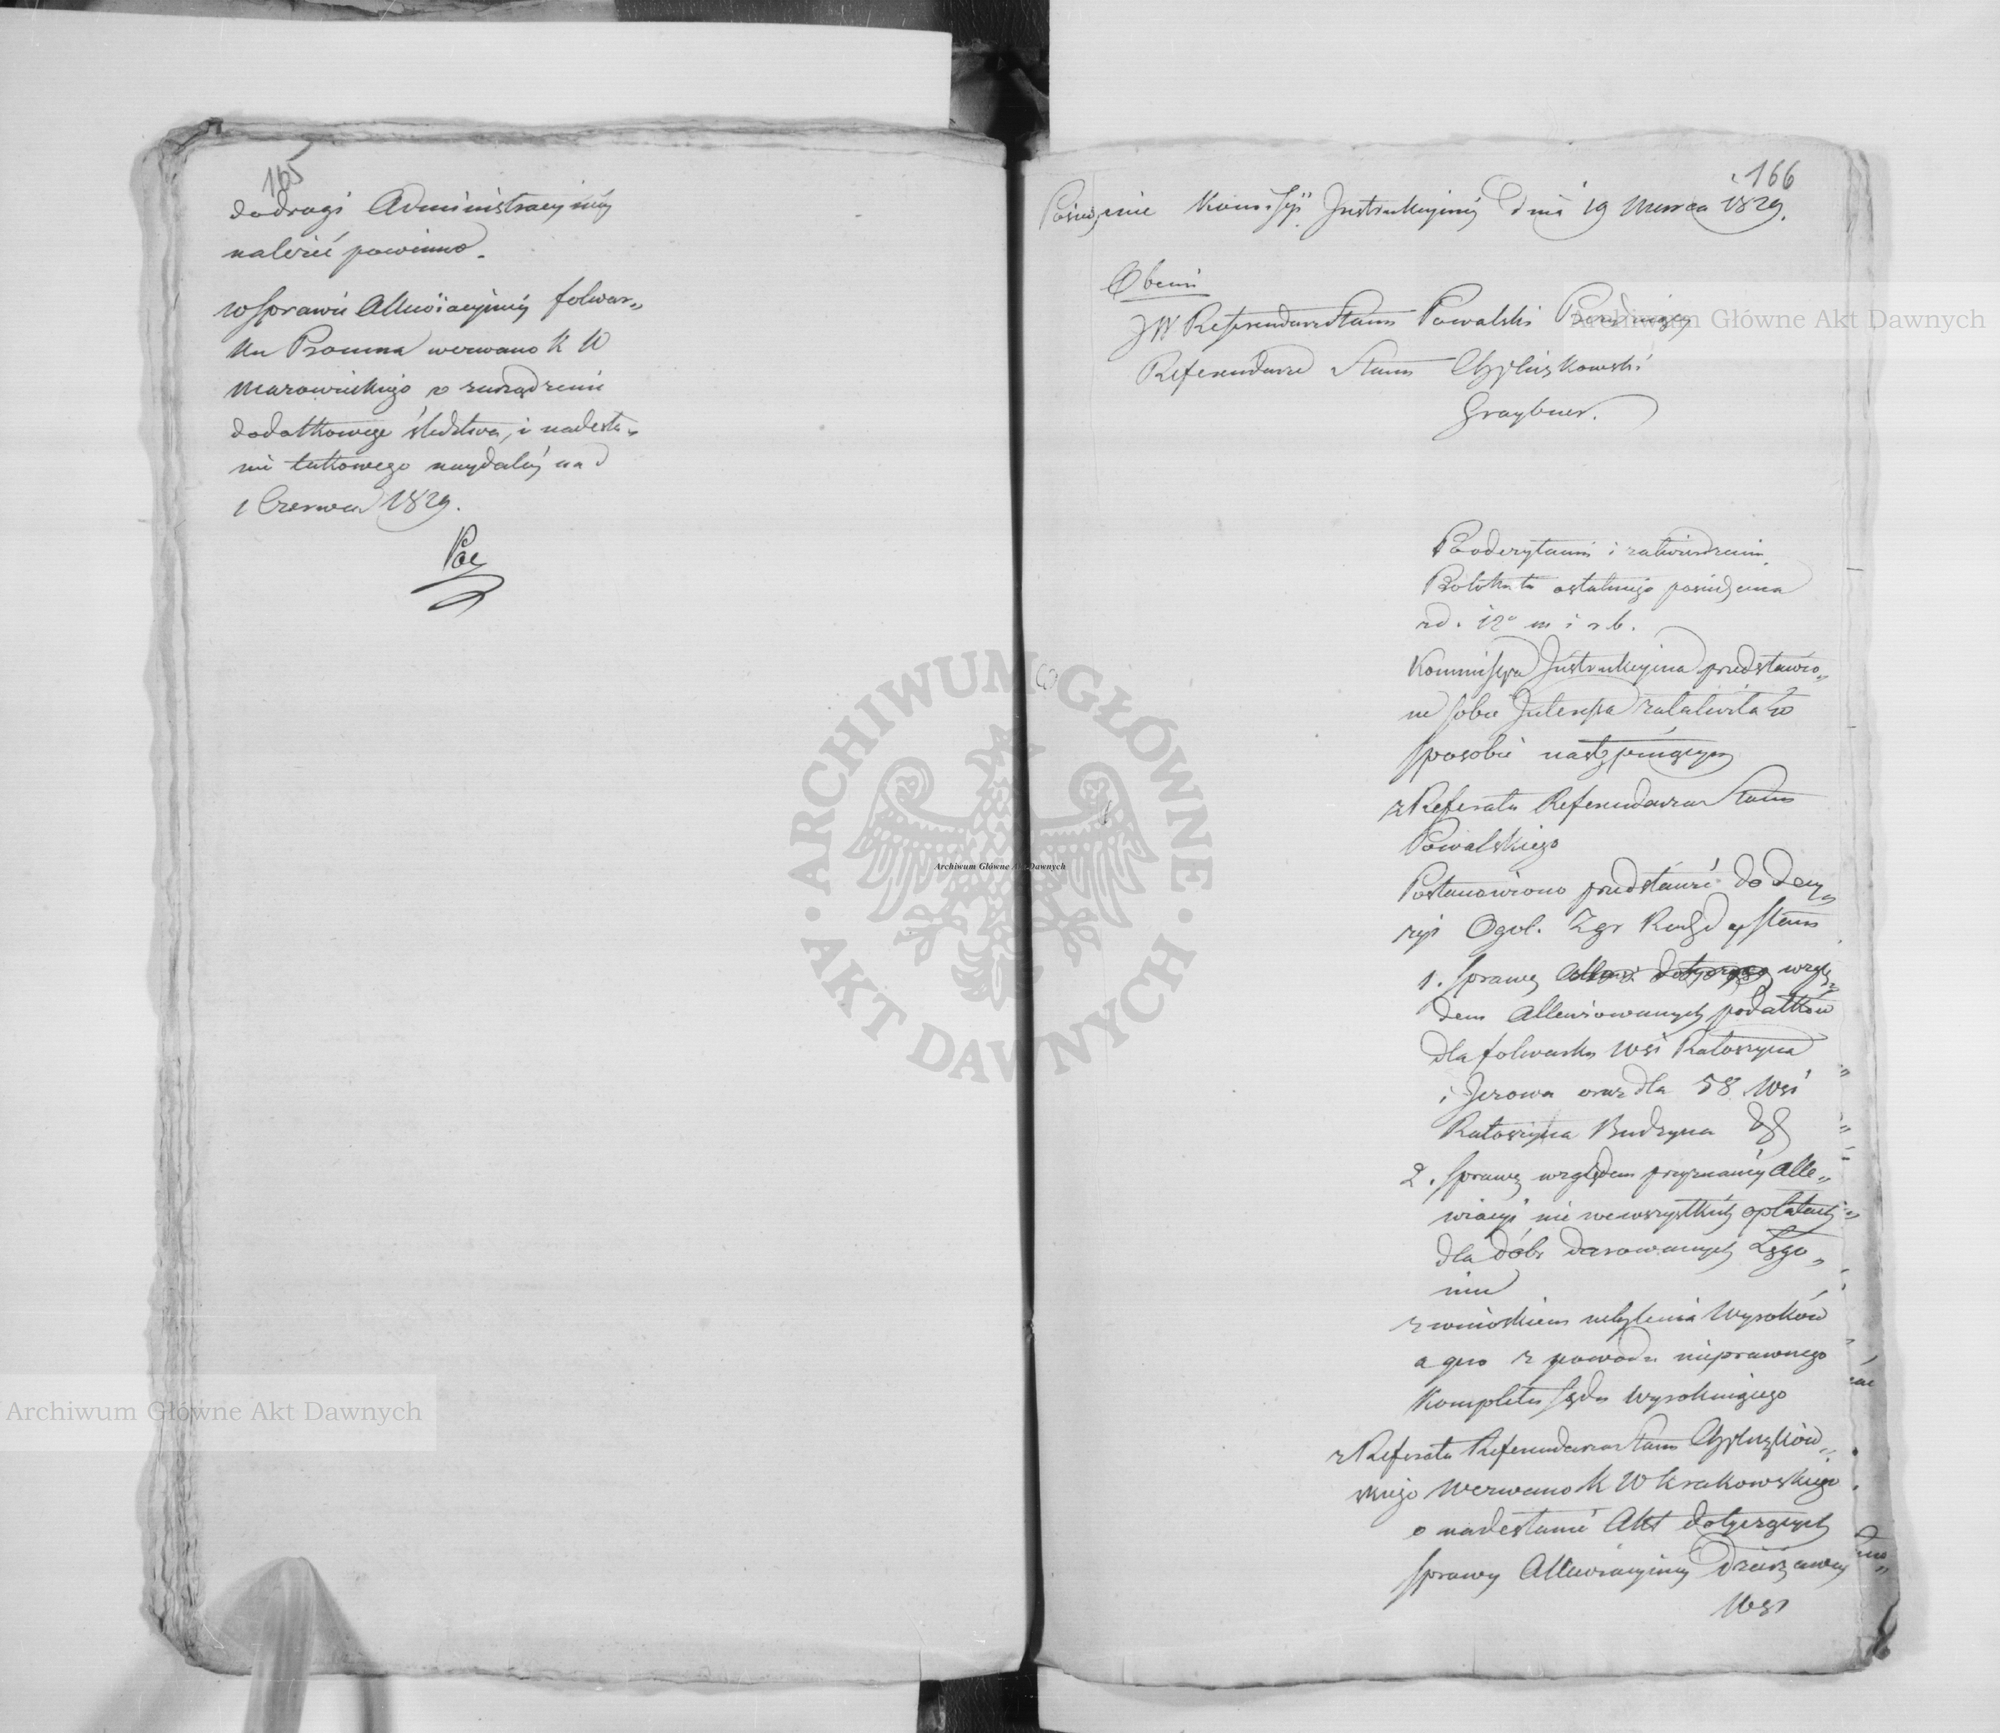 165
do drogi Administracyjnéy
należéć powinno.
w Sprawie Allewiacyjnéj folwar„
ku Promna wezwano K W
Mazowieckiego o zarządzenie
dodatkowego śledztwa, i nadesła„
nie takowego naydaléj na d
1 Czerwca 1829.
166
Posiedzenie Kommissyi Instrukcyjnéj dnia 19 Marca 1829.
Obecni
JW Referendarz Stanu Powalski Prezydujący
Referendarz Stanu
Graybner.
Po odczytaniu i zatwierdzeniu
Protokułu ostatniego posiedzenia
z d. 12º m i r b.
Kommissya Instrukcyjna przedstawio„
ne sobie Interessa załatwiła w
sposobie następującym
z Referatu Referendarza Stanu
Powalskiego
Postanowiono przedstawić do decy„
zyi Ogól. Zgr Rady Stanu
1. Sprawę wzglę„
dem Allewiowanych podatków
dla folwarku Wsi Ratoszyna
i Jerowa oraz dla 58 Wsi
Ratoszyna Budzyna
2. Sprawę względem przyznanéy Alle„
wiacyi nie we wszystkich opłatach
dla dóbr darowanych Łęgo„
nice
z wnioskiem uchylenia Wyroków
a quo z powodu nieprawnego
Kompletu Sądu Wyrokuiącego
z Referatu Referendarza Stanu
skiego Wezwano K W Krakowskiego
o nadesłanie Akt dotyczących
sprawy Allewiacyjnéj dzierżawcy
Wsi
Archiwum Główne Akt Dawnych
Archiwum Główne Akt Dawnych
Archiwum Główne Akt Dawnych
ARCHIWUM GŁÓWNE
AKT DAWNYCH